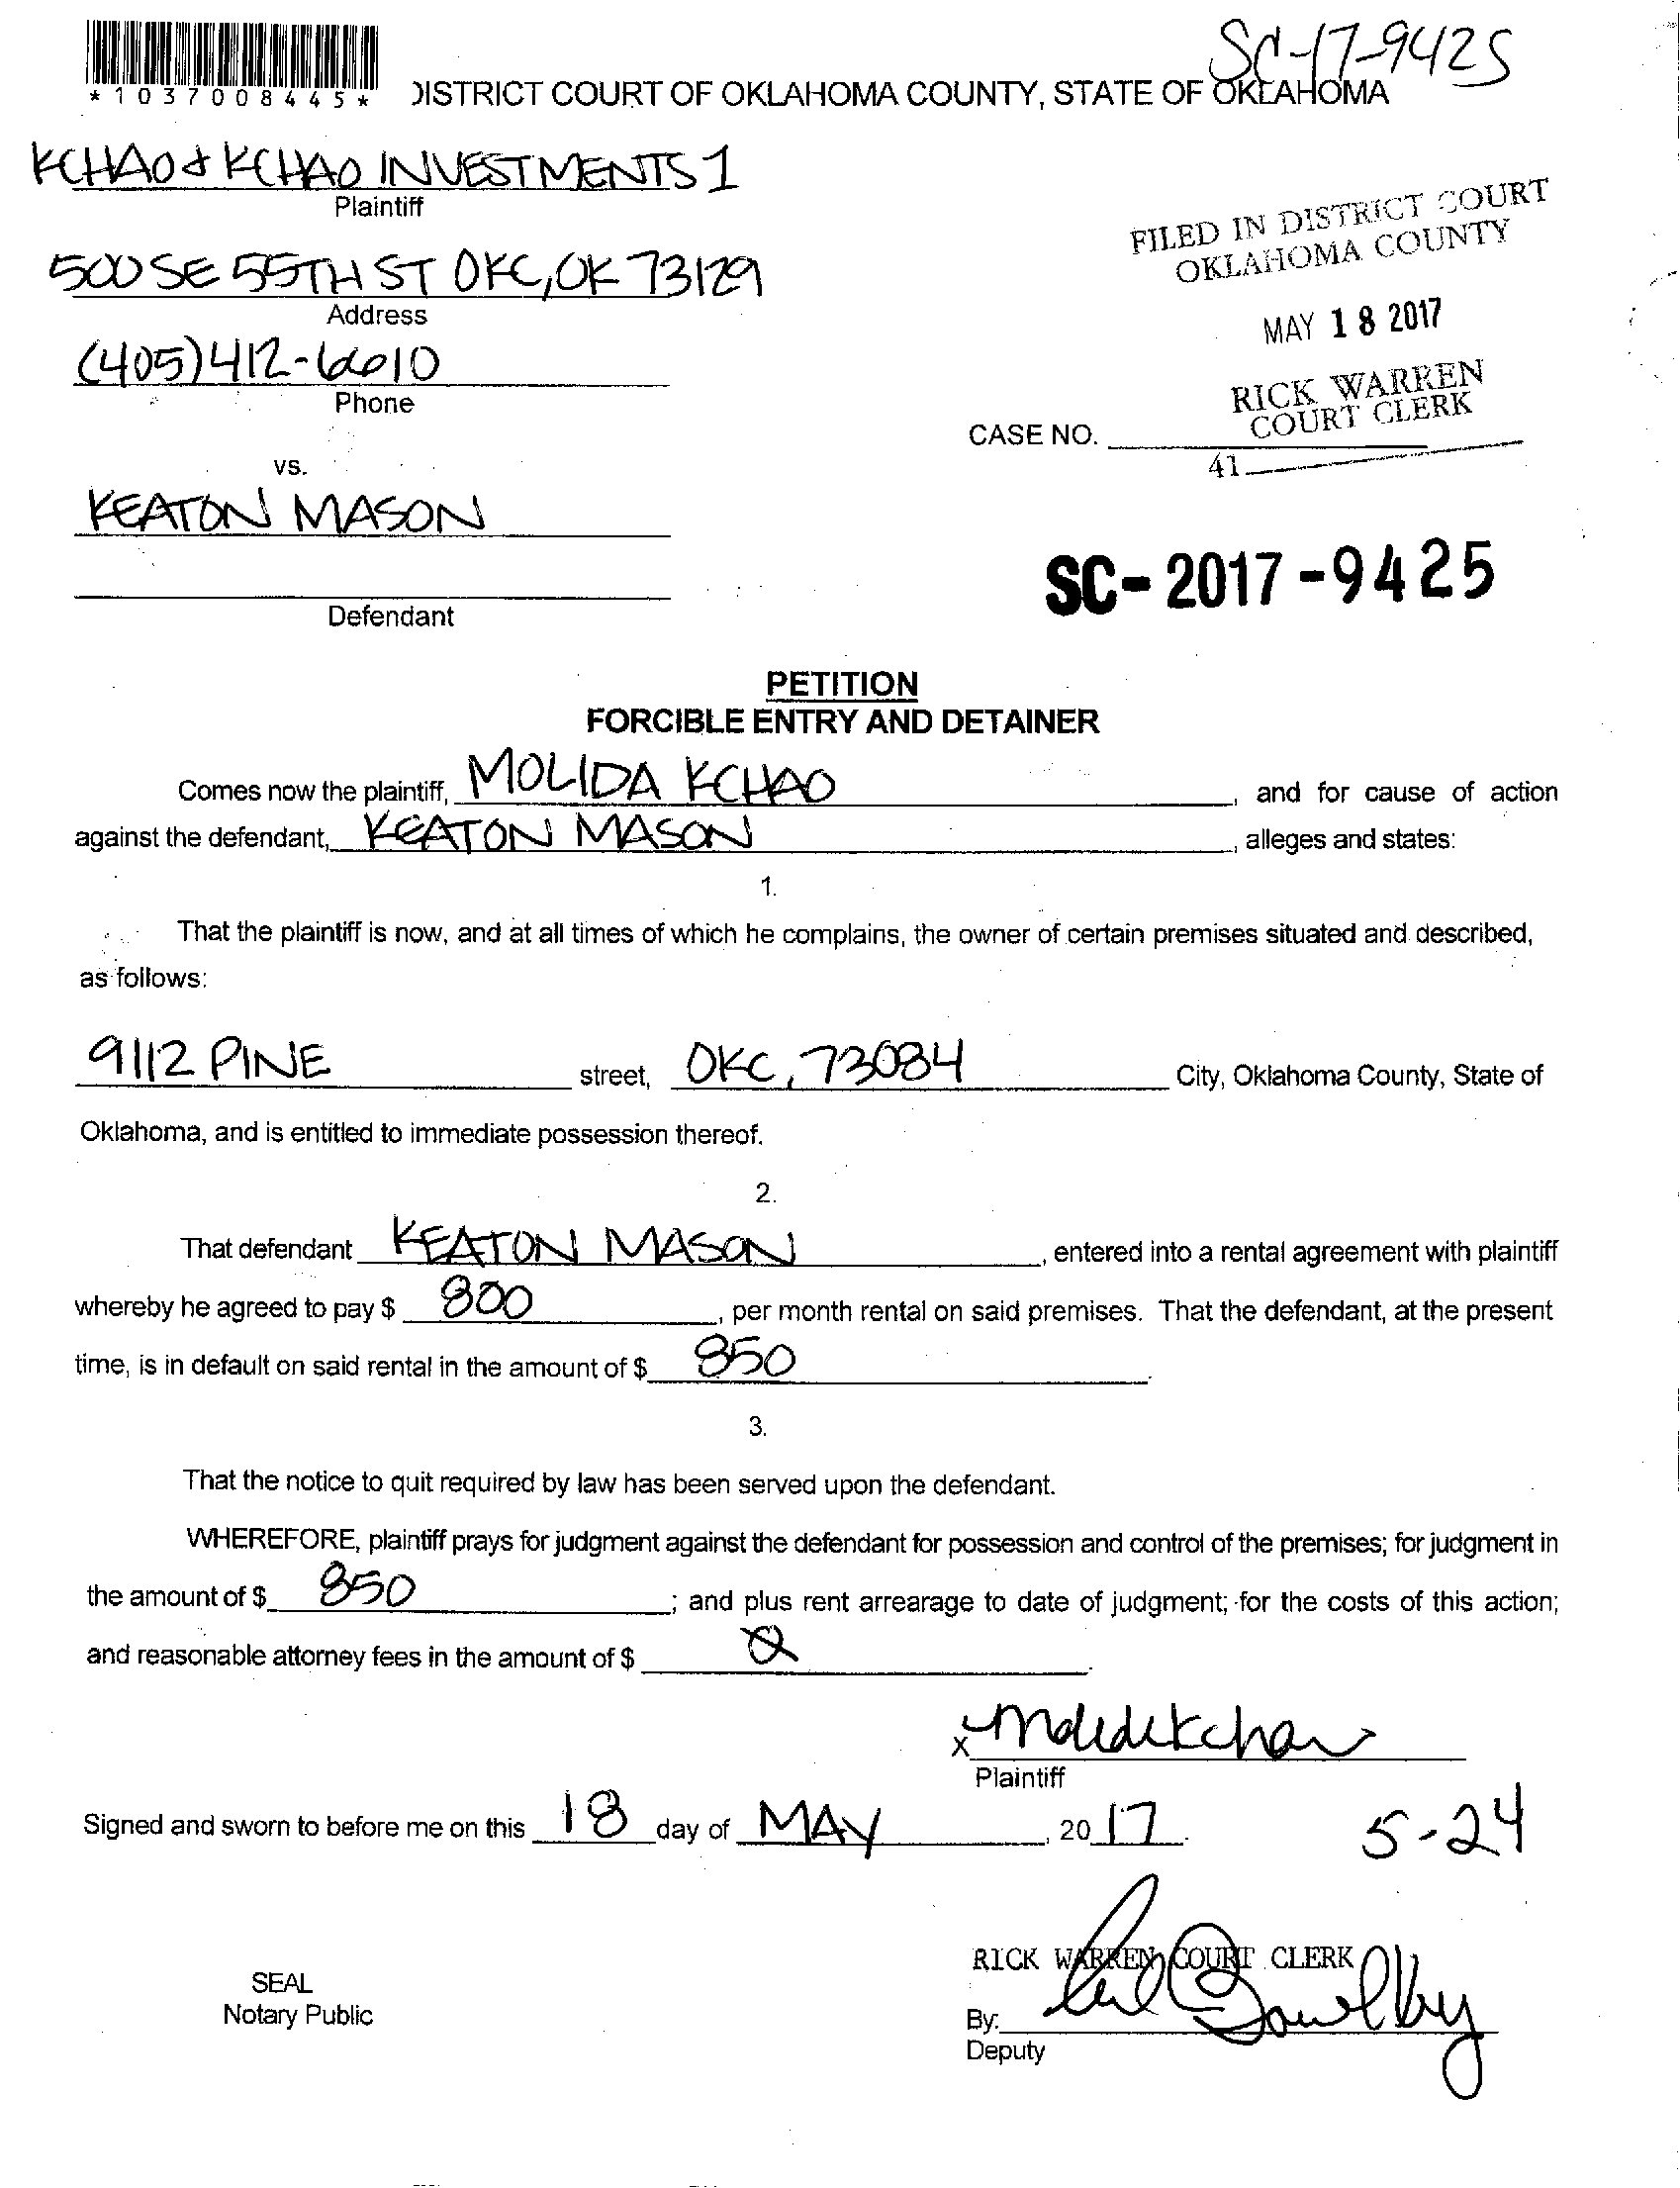 SC-17-9425
*1037008445*
DISTRICT COURT OF OKLAHOMA COUNTY, STATE OF OKLAHOMA
KCHAO & KCHAO INVESTMENTS 1
Plaintiff
500 SE 55TH ST OKC, OK 73129
Address
(405) 412-6610
Phone
FILED IN DISTRICT COURT
OKLAHOMA COUNTY
MAY 18 2017
RICK WARREN
COURT CLERK
CASE NO.
41
vs.
KEATON MASON
Defendant
SC-2017-9425
PETITION
FORCIBLE ENTRY AND DETAINER
Comes now the plaintiff, MOLIDA KCHAO, and for cause of action
against the defendant, KEATON MASON, alleges and states:
1.
That the plaintiff is now, and at all times of which he complains, the owner of certain premises situated and described,
as follows:
9112 PINE street, OKC, 73084 City, Oklahoma County, State of
Oklahoma, and is entitled to immediate possession thereof.
2.
That defendant KEATON MASON, entered into a rental agreement with plaintiff
whereby he agreed to pay $ 800, per month rental on said premises. That the defendant, at the present
time, is in default on said rental in the amount of $ 850.
3.
That the notice to quit required by law has been served upon the defendant.
WHEREFORE, plaintiff prays for judgment against the defendant for possession and control of the premises; for judgment in
the amount of $ 850; and plus rent arrearage to date of judgment; for the costs of this action;
and reasonable attorney fees in the amount of $ 0.
x Molida Kchao
Plaintiff
Signed and sworn to before me on this 18 day of MAY, 2017.
5-24
RICK WARREN COURT CLERK
SEAL
Notary Public
By:
Deputy